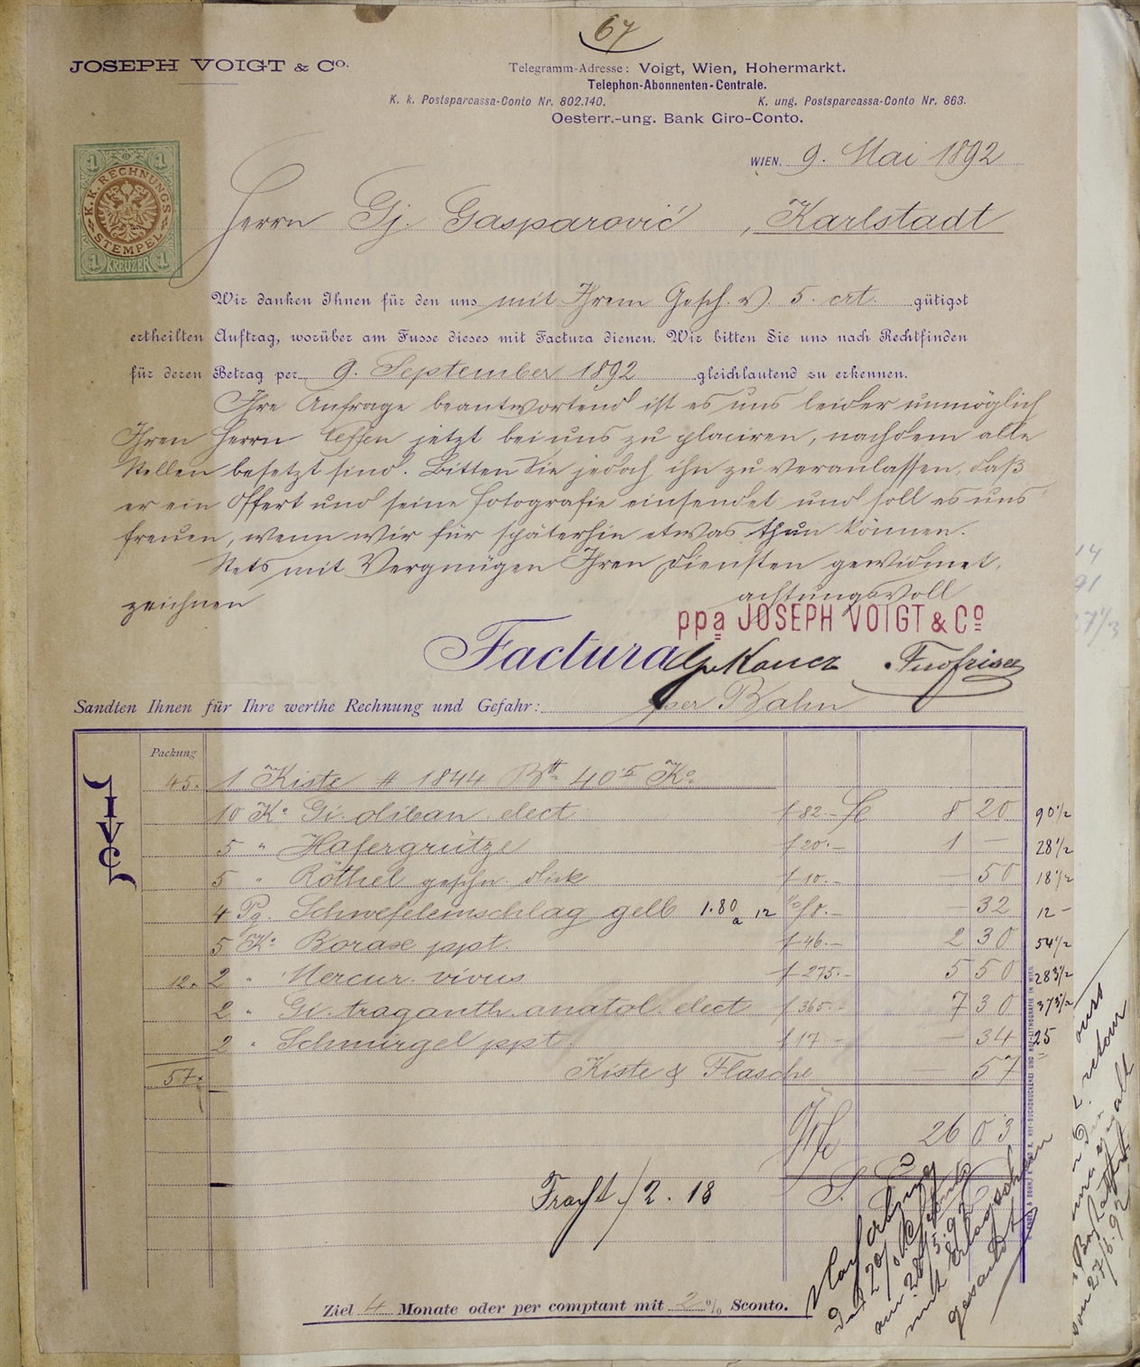 67
JOSEPH VOIGT & Cº.
Telegramm-Adresse: Voigt, Wien, Hohermarkt.
Telephon-Abonnenten-Centrale.
K. k. Postsparcassa-Conto Nr. 802.140. K. ung. Postsparcassa-Conto Nr. 863.
Oesterr.-ung. Bank Giro-Conto.
WIEN, 9. Mai 1892
1 1
K.K. RECHNUNGS STEMPEL
1 KREUZER 1
Herrn Gj. Gasparović, Karlstadt
Wir danken Ihnen für den uns mit Ihrem Gesch. v. 5. crt. gütigst
ertheilten Auftrag, worüber am Fusse dieses mit Factura dienen. Wir bitten Sie uns nach Rechtfinden
für deren Betrag per 9. September 1892 gleichlautend zu erkennen.
Ihre Anfrage beantwortend ist es uns leider unmöglich
Ihren Herrn jetzt bei uns zu placiren, nachdem alle
Stellen besetzt sind. Bitten Sie jedoch ihn zu veranlassen, daß
er ein Offert und seine Fotografie einsendet und soll es uns
freuen, wenn wir für späterhin etwas thun können.
Stets mit Vergnügen Ihren Diensten gewidmet,
zeichnen achtungsvoll
ppa JOSEPH VOIGT & Cº
Factura
Sandten Ihnen für Ihre werthe Rechnung und Gefahr: per Bahn
Packung
JVC
45. 1 Kiste # 1844 Btt 40.5 Kº
10 Kº Gi. oliban. elect f 82.- 8 20 90 1/2
5 " Hafergrütze f 20.- 1 - 28 1/2
5 " Röthel geschn. dick f 10.- - 50 18 1/2
4 Pq. Schwefeleinschlag gelb 1.80 a 12 %/8.- - 32 12 -
5 Kº Borax ppt. f 46.- 2 30 54 1/2
12. 2 " Mercur. vivus f 275.- 5 50 283 1/2
2 " Gi. traganth. anatol. elect f 365.- 7 30 373 1/2
2 " Schmirgel ppt. f 17 - - 34 25
57. Kiste & Flasche - 57
26 03
Fracht f 2. 18
Ziel 4 Monate oder per comptant mit 2 % Sconto.